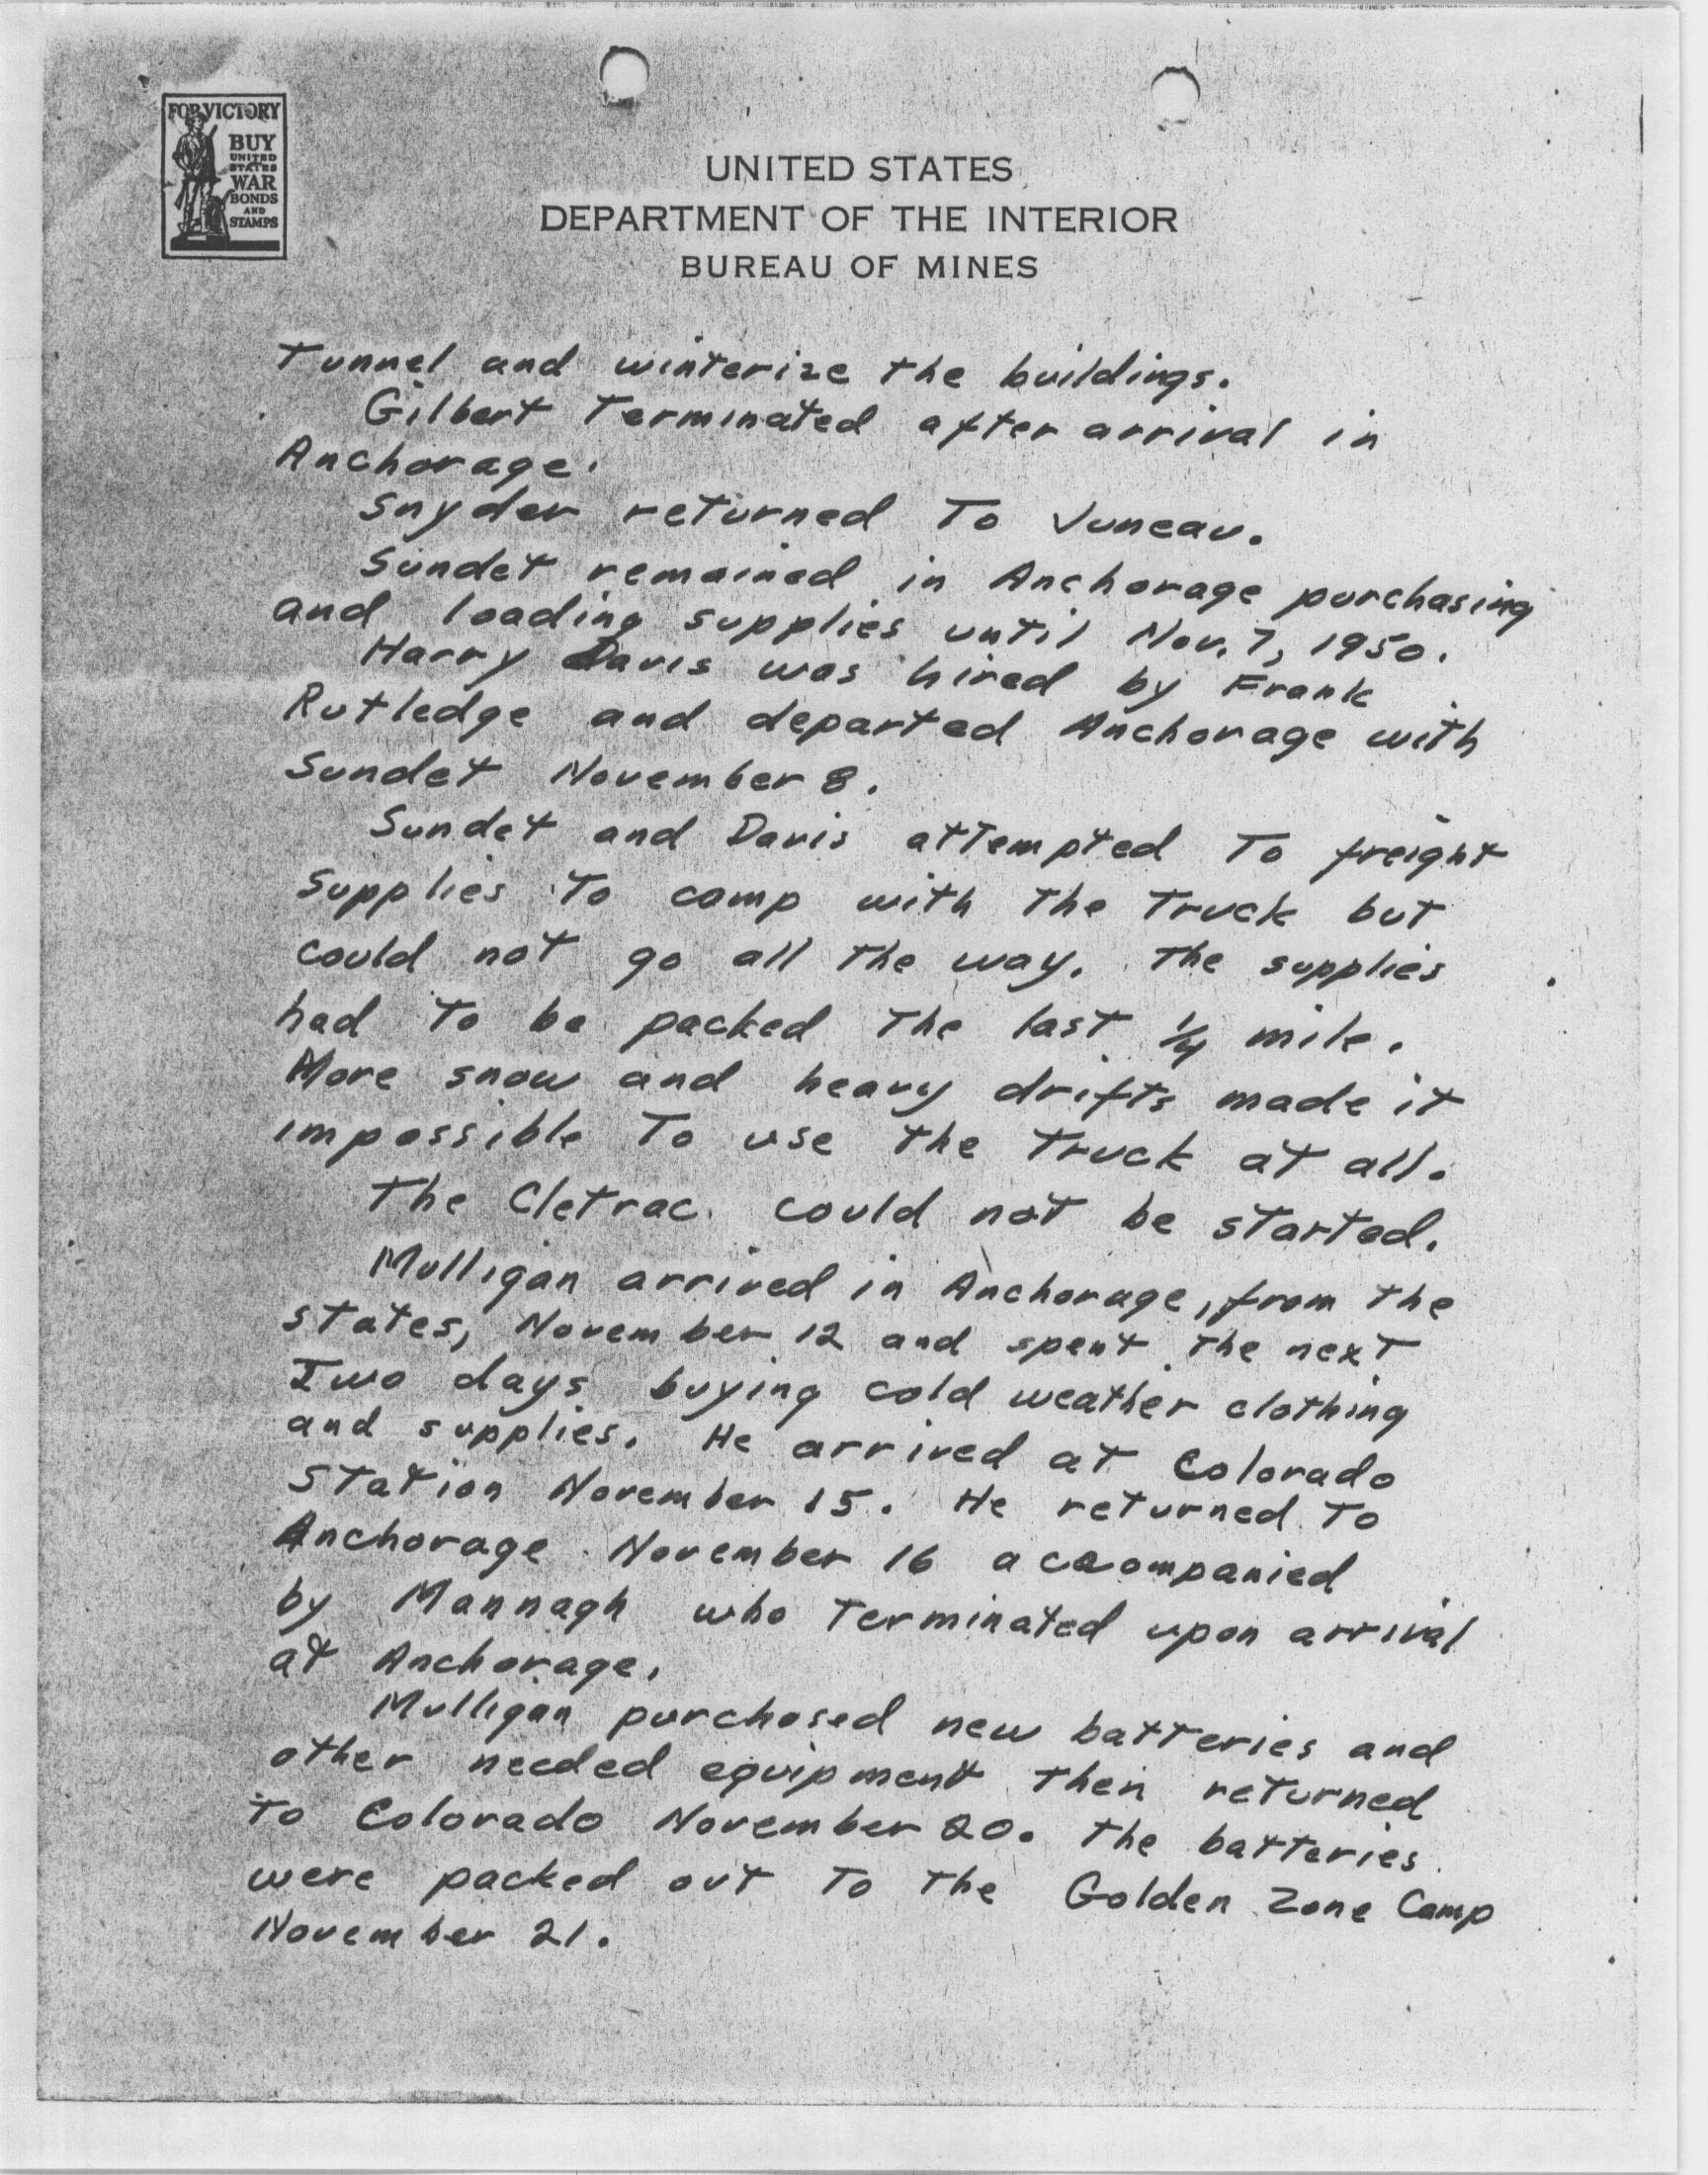 FOR VICTORY
BUY
UNITED
STATES
WAR
BONDS
AND
STAMPS
UNITED STATES
DEPARTMENT OF THE INTERIOR
BUREAU OF MINES
Tunnel and winterize the buildings.
Gilbert Terminated after arrival in
Anchorage.
Snyder returned To Juneau.
Sundet remained in Anchorage purchasing
and loading supplies until Nov. 7, 1950.
Harry Davis was hired by Frank
Rutledge and departed Anchorage with
Sundet November 8.
Sundet and Davis attempted To freight
supplies To camp with the Truck but
could not go all the way. The supplies
had To be packed The last 1/4 mile.
More snow and heavy drifts made it
impossible To use the Truck at all.
The Cletrac could not be started.
Mulligan arrived in Anchorage, from the
states, November 12 and spent the next
Two days buying cold weather clothing
and supplies. He arrived at Colorado
Station November 15. He returned To
Anchorage November 16 accompanied
by Mannagh who Terminated upon arrival
at Anchorage.
Mulligan purchased new batteries and
other needed equipment then returned
To Colorado November 20. The batteries
were packed out To The Golden Zone Camp
November 21.